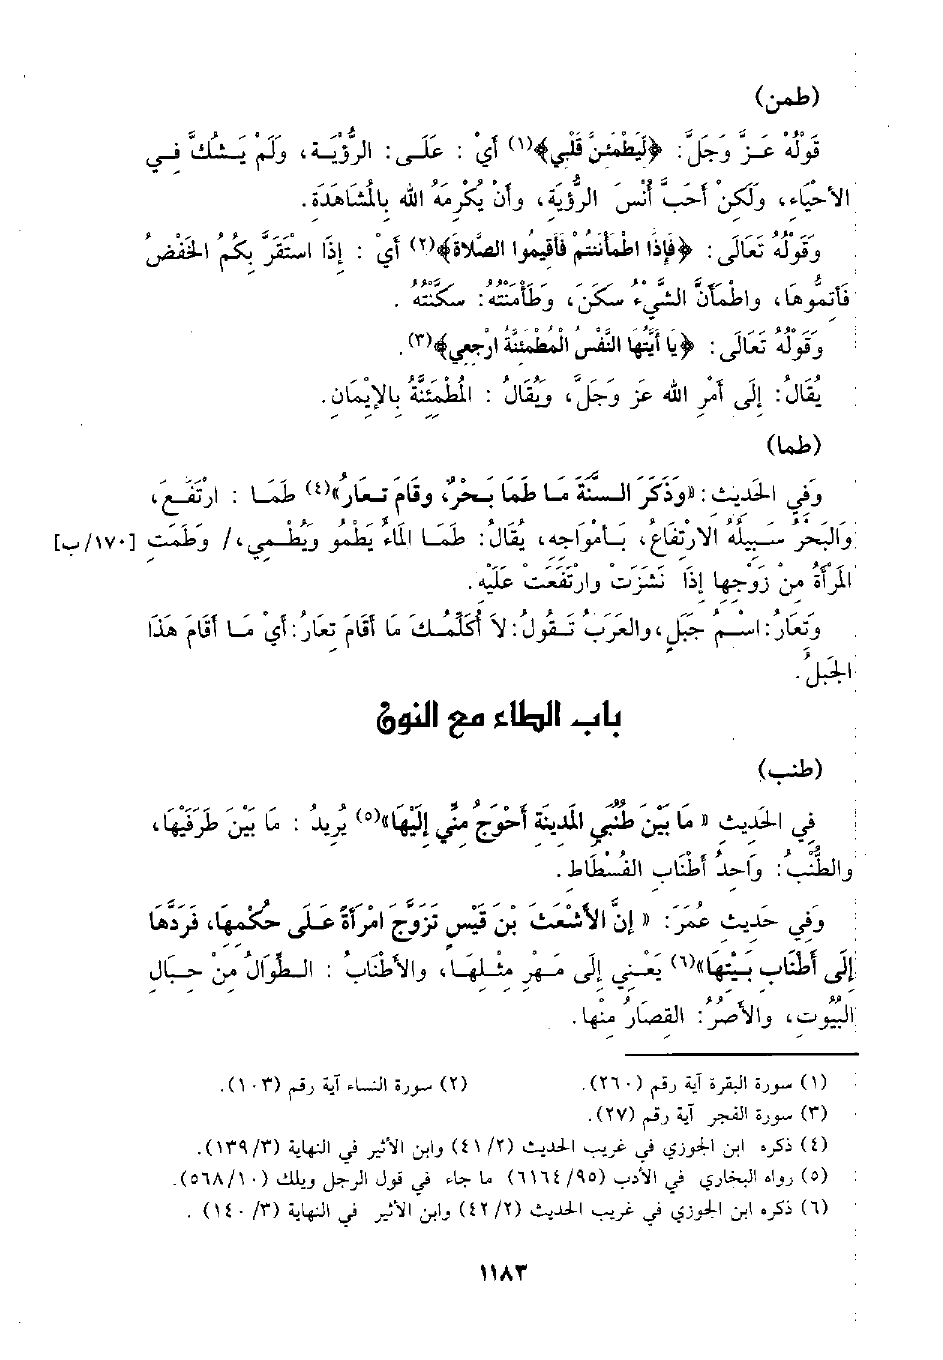 (طمن)
قَوْلُهُ عَزَّ وَجَلَّ: ﴿لِيَطْمَئِنَّ قَلْبِي﴾(١) أَيْ : عَلَى: الرُّؤْيَةِ، وَلَمْ يَشُكَّ فِي
الأَحْيَاءِ، وَلَكِنْ أَحَبَّ أُنْسَ الرُّؤيَةِ، وأَنْ يُكْرِمَهُ اللهُ بِالمُشَاهَدَةِ.
وَقَوْلُهُ تَعَالَى: ﴿فَإِذَا اطْمَأْنَنْتُمْ فَأَقِيمُوا الصَّلَاةَ﴾(٢) أَيْ : إِذَا اسْتَقَرَّ بِكُمُ الخَفْضُ
فَأَتِمُّوهَا، واطْمَأَنَّ الشَّيْءُ سَكَنَ، وَطَأْمَنْتُهُ: سَكَّنْتُهُ .
وَقَوْلُهُ تَعَالَى: ﴿يَا أَيَّتُهَا النَّفْسُ الْمُطْمَئِنَّةُ ارْجِعِي﴾(٣).
يُقَالُ: إِلَى أَمْرِ اللهِ عَز وَجَلَّ، ويُقَالُ : المُطْمَئِنَّةُ بِالإِيْمَانِ.
(طما)
وَفِي الحَدِيثِ: «وَذَكَرَ السَّنَةَ مَا طَمَا بَحْرٌ، وقَامَ تِعَارُ»(٤) طَمَا : ارْتَفَعَ،
وَالبَحْرُ سَبِيلُهُ الارْتِفَاعُ، بَأَمْوَاجِهِ، يُقَالُ: طَمَا المَاءُ يَطْمُو ويَطْمِي،/ وطَمَتِ [١٧٠/ب]
المَرْأَةُ مِنْ زَوْجِها إِذَا نَشَزَتْ وارْتَفَعَتْ عَلَيْهِ.
وتِعَارُ: اسْمُ جَبَلٍ، والعَرَبُ تَقُولُ: لاَ أُكَلِّمُكَ مَا أَقَامَ تِعَارُ: أَيْ مَا أَقَامَ هَذَا
الجَبَلُ.
باب الطاء مع النون
(طنب)
فِي الحَدِيثِ « مَا بَيْنَ طُنُبَيِ المَدِينَةِ أَحْوَجُ مِنِّي إِلَيْهَا»(٥) يُرِيدُ : مَا بَيْنَ طَرَفَيْهَا،
والطُّنُبُ: وَاحِدُ أَطْنَابِ الفُسْطَاطِ.
وَفِي حَدِيثِ عُمَرَ: « إِنَّ الأَشْعَثَ بْنَ قَيْسٍ تَزَوَّجَ امْرَأَةً عَلَى حُكْمِهَا، فَرَدَّهَا
إِلَى أَطْنَابِ بَيْتِهَا»(٦) يَعْنِي إِلَى مَهْرِ مِثْلِهَا، والأَطْنَابُ : الطِّوَالُ مِنْ حِبَالِ
البُيُوتِ، والأُصُرُ: القِصَارُ مِنْها.
(١) سورة البقرة آية رقم (٢٦٠). (٢) سورة النساء آية رقم (١٠٣).
(٣) سورة الفجر آية رقم (٢٧).
(٤) ذكره ابن الجوزي في غريب الحديث (٤١/٢) وابن الأثير في النهاية (١٣٩/٣).
(٥) رواه البخاري في الأدب (٦١٦٤/٩٥) ما جاء في قول الرجل ويلك (٥٦٨/١٠).
(٦) ذكره ابن الجوزي في غريب الحديث (٤٢/٢) وابن الأثير في النهاية (١٤٠/٣) .
١١٨٣